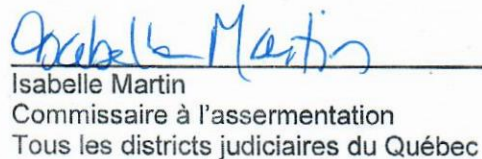 Isabelle Martin
Isabelle Martin
Commissaire à l'assermentation
Tous les districts judiciaires du Québec